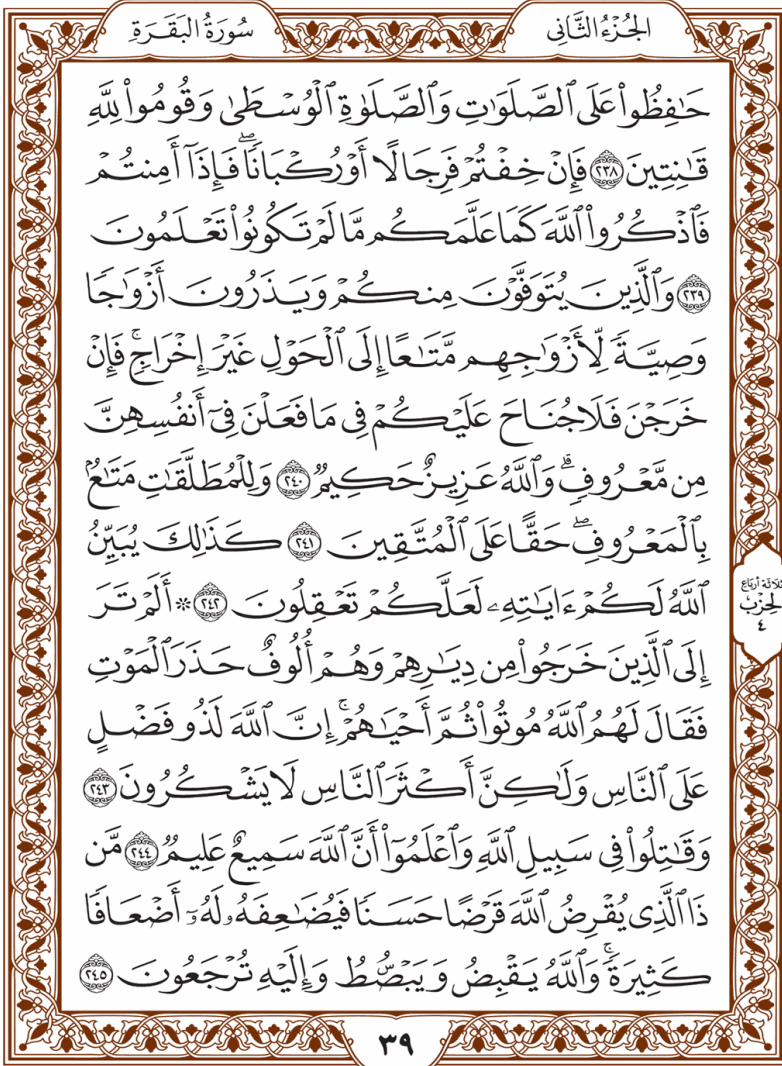 سُورَةُ البَقَرَةِ
الجُزْءُ الثَّانِى
حَٰفِظُوا۟ عَلَى ٱلصَّلَوَٰتِ وَٱلصَّلَوٰةِ ٱلۡوُسۡطَىٰ وَقُومُوا۟ لِلَّهِ
قَٰنِتِينَ ٢٣٨ فَإِنۡ خِفۡتُمۡ فَرِجَالًا أَوۡ رُكۡبَانٗاۖ فَإِذَآ أَمِنتُمۡ
فَٱذۡكُرُوا۟ ٱللَّهَ كَمَا عَلَّمَكُم مَّا لَمۡ تَكُونُوا۟ تَعۡلَمُونَ
٢٣٩ وَٱلَّذِينَ يُتَوَفَّوۡنَ مِنكُمۡ وَيَذَرُونَ أَزۡوَٰجٗا
وَصِيَّةٗ لِّأَزۡوَٰجِهِم مَّتَٰعًا إِلَى ٱلۡحَوۡلِ غَيۡرَ إِخۡرَاجٖۚ فَإِنۡ
خَرَجۡنَ فَلَا جُنَاحَ عَلَيۡكُمۡ فِي مَا فَعَلۡنَ فِيٓ أَنفُسِهِنَّ
مِن مَّعۡرُوفٖۗ وَٱللَّهُ عَزِيزٌ حَكِيمٞ ٢٤٠ وَلِلۡمُطَلَّقَٰتِ مَتَٰعُۢ
بِٱلۡمَعۡرُوفِۖ حَقًّا عَلَى ٱلۡمُتَّقِينَ ٢٤١ كَذَٰلِكَ يُبَيِّنُ
ٱللَّهُ لَكُمۡ ءَايَٰتِهِۦ لَعَلَّكُمۡ تَعۡقِلُونَ ٢٤٢ ۞ أَلَمۡ تَرَ
إِلَى ٱلَّذِينَ خَرَجُوا۟ مِن دِيَٰرِهِمۡ وَهُمۡ أُلُوفٌ حَذَرَ ٱلۡمَوۡتِ
فَقَالَ لَهُمُ ٱللَّهُ مُوتُوا۟ ثُمَّ أَحۡيَٰهُمۡۚ إِنَّ ٱللَّهَ لَذُو فَضۡلٍ
عَلَى ٱلنَّاسِ وَلَٰكِنَّ أَكۡثَرَ ٱلنَّاسِ لَا يَشۡكُرُونَ ٢٤٣
وَقَٰتِلُوا۟ فِي سَبِيلِ ٱللَّهِ وَٱعۡلَمُوٓا۟ أَنَّ ٱللَّهَ سَمِيعٌ عَلِيمٞ ٢٤٤ مَّن
ذَا ٱلَّذِي يُقۡرِضُ ٱللَّهَ قَرۡضًا حَسَنٗا فَيُضَٰعِفَهُۥ لَهُۥٓ أَضۡعَافٗا
كَثِيرَةٗۚ وَٱللَّهُ يَقۡبِضُ وَيَبۡصُۜطُ وَإِلَيۡهِ تُرۡجَعُونَ ٢٤٥
ثلاثة أرباع
الحِزْب
٤
٣٩